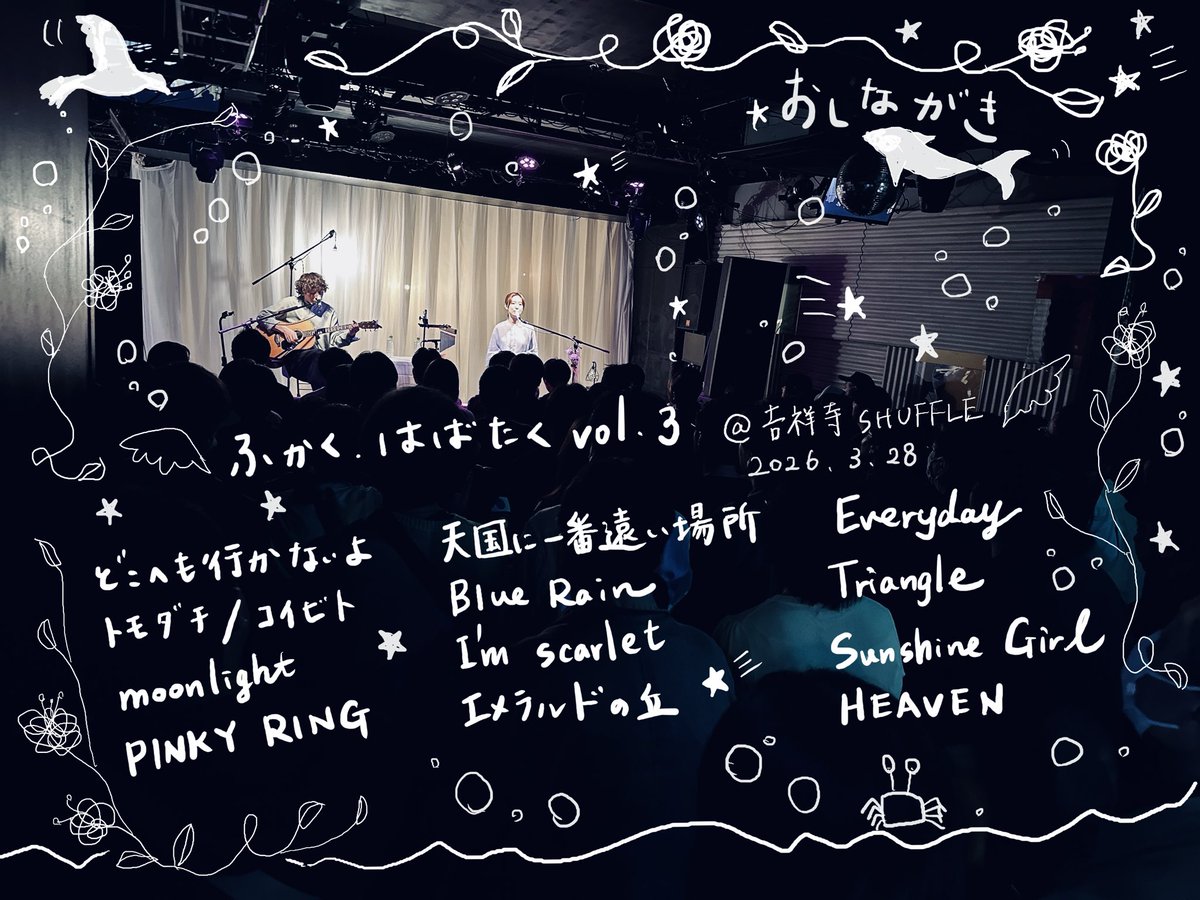 おしながき
ふかく、はばたく vol.3
@吉祥寺 SHUFFLE
2026.3.28
どこへも行かないよ
トモダチ/コイビト
moonlight
PINKY RING
天国に一番遠い場所
Blue Rain
I'm scarlet
エメラルドの丘
Everyday
Triangle
Sunshine Girl
HEAVEN